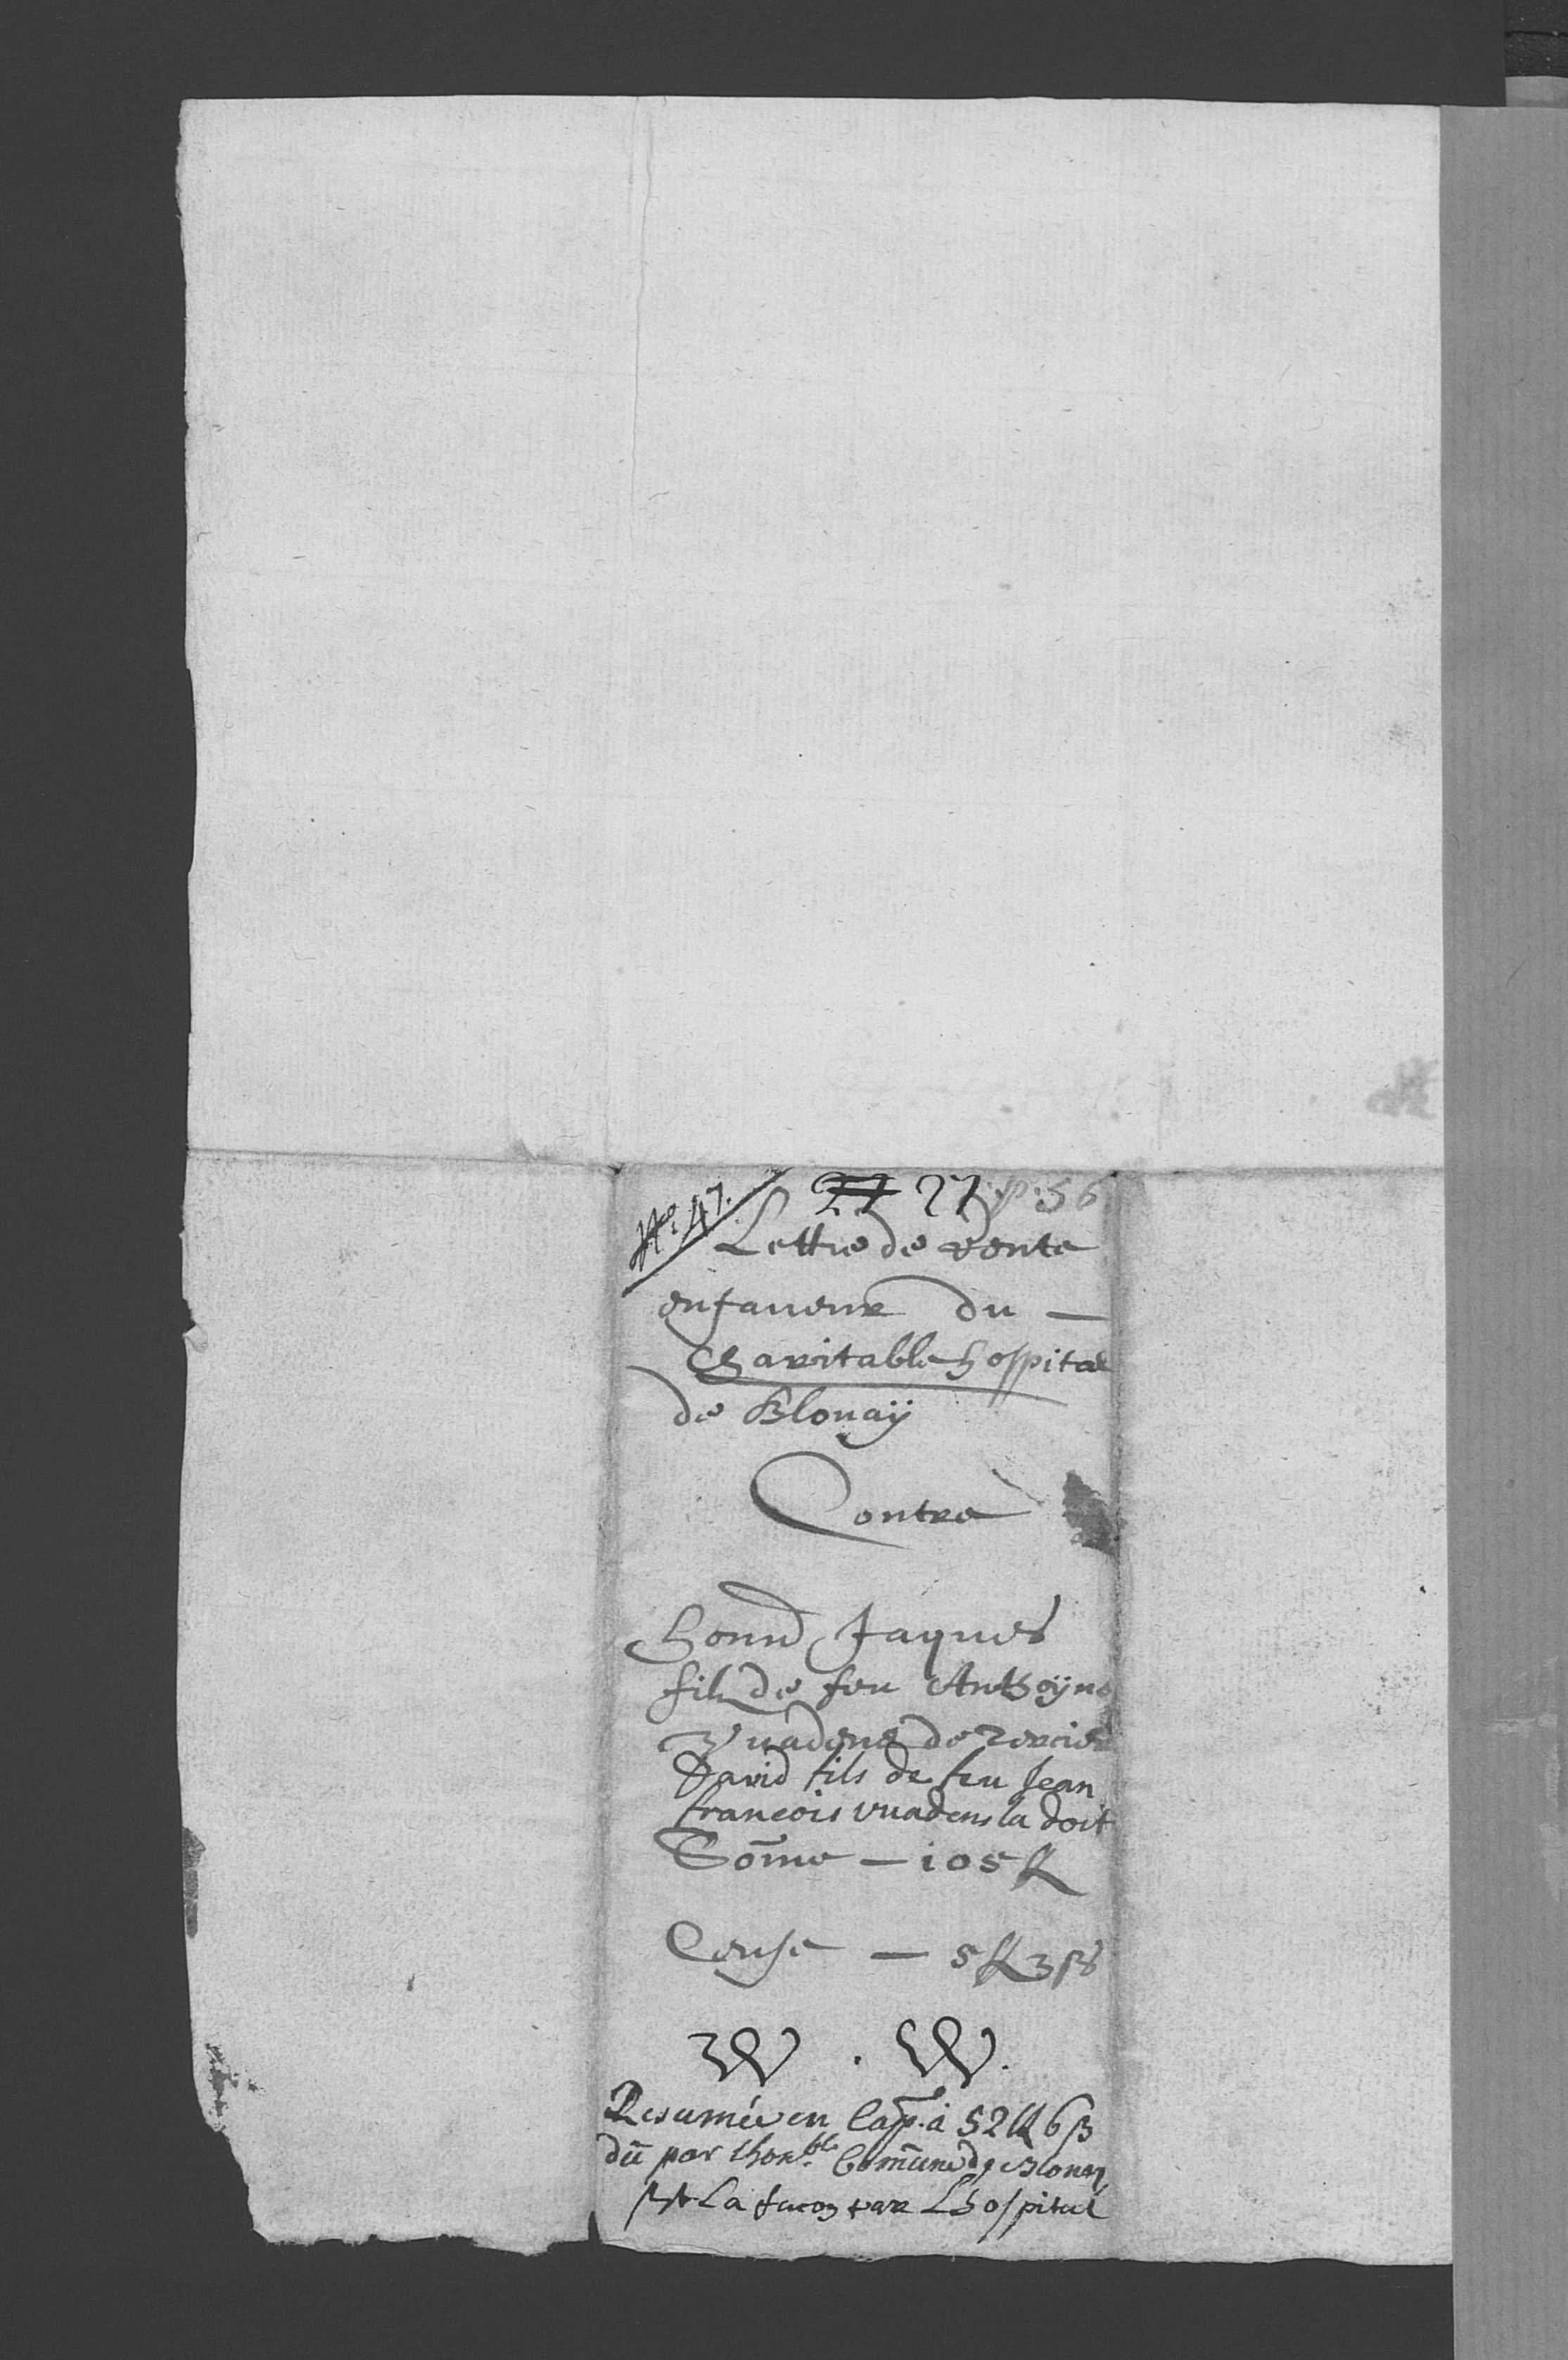 No. 47.
27 27 p. 56
Lettre de rente
enfaueur du —
Charitable hospital
de Blonaÿ
Contre
Honnd Jaques
filz de feu Anthoÿne
Vuadens de
David fils de feu Jean
francois vuadens la doit
Some — 105 ℔
Cense — 5 ℔ 3 ß
W . W.
en Cap. à 52 ℔ 6 ß
dü par lhon.ble Comune de Blonay
La facon par Lhospital